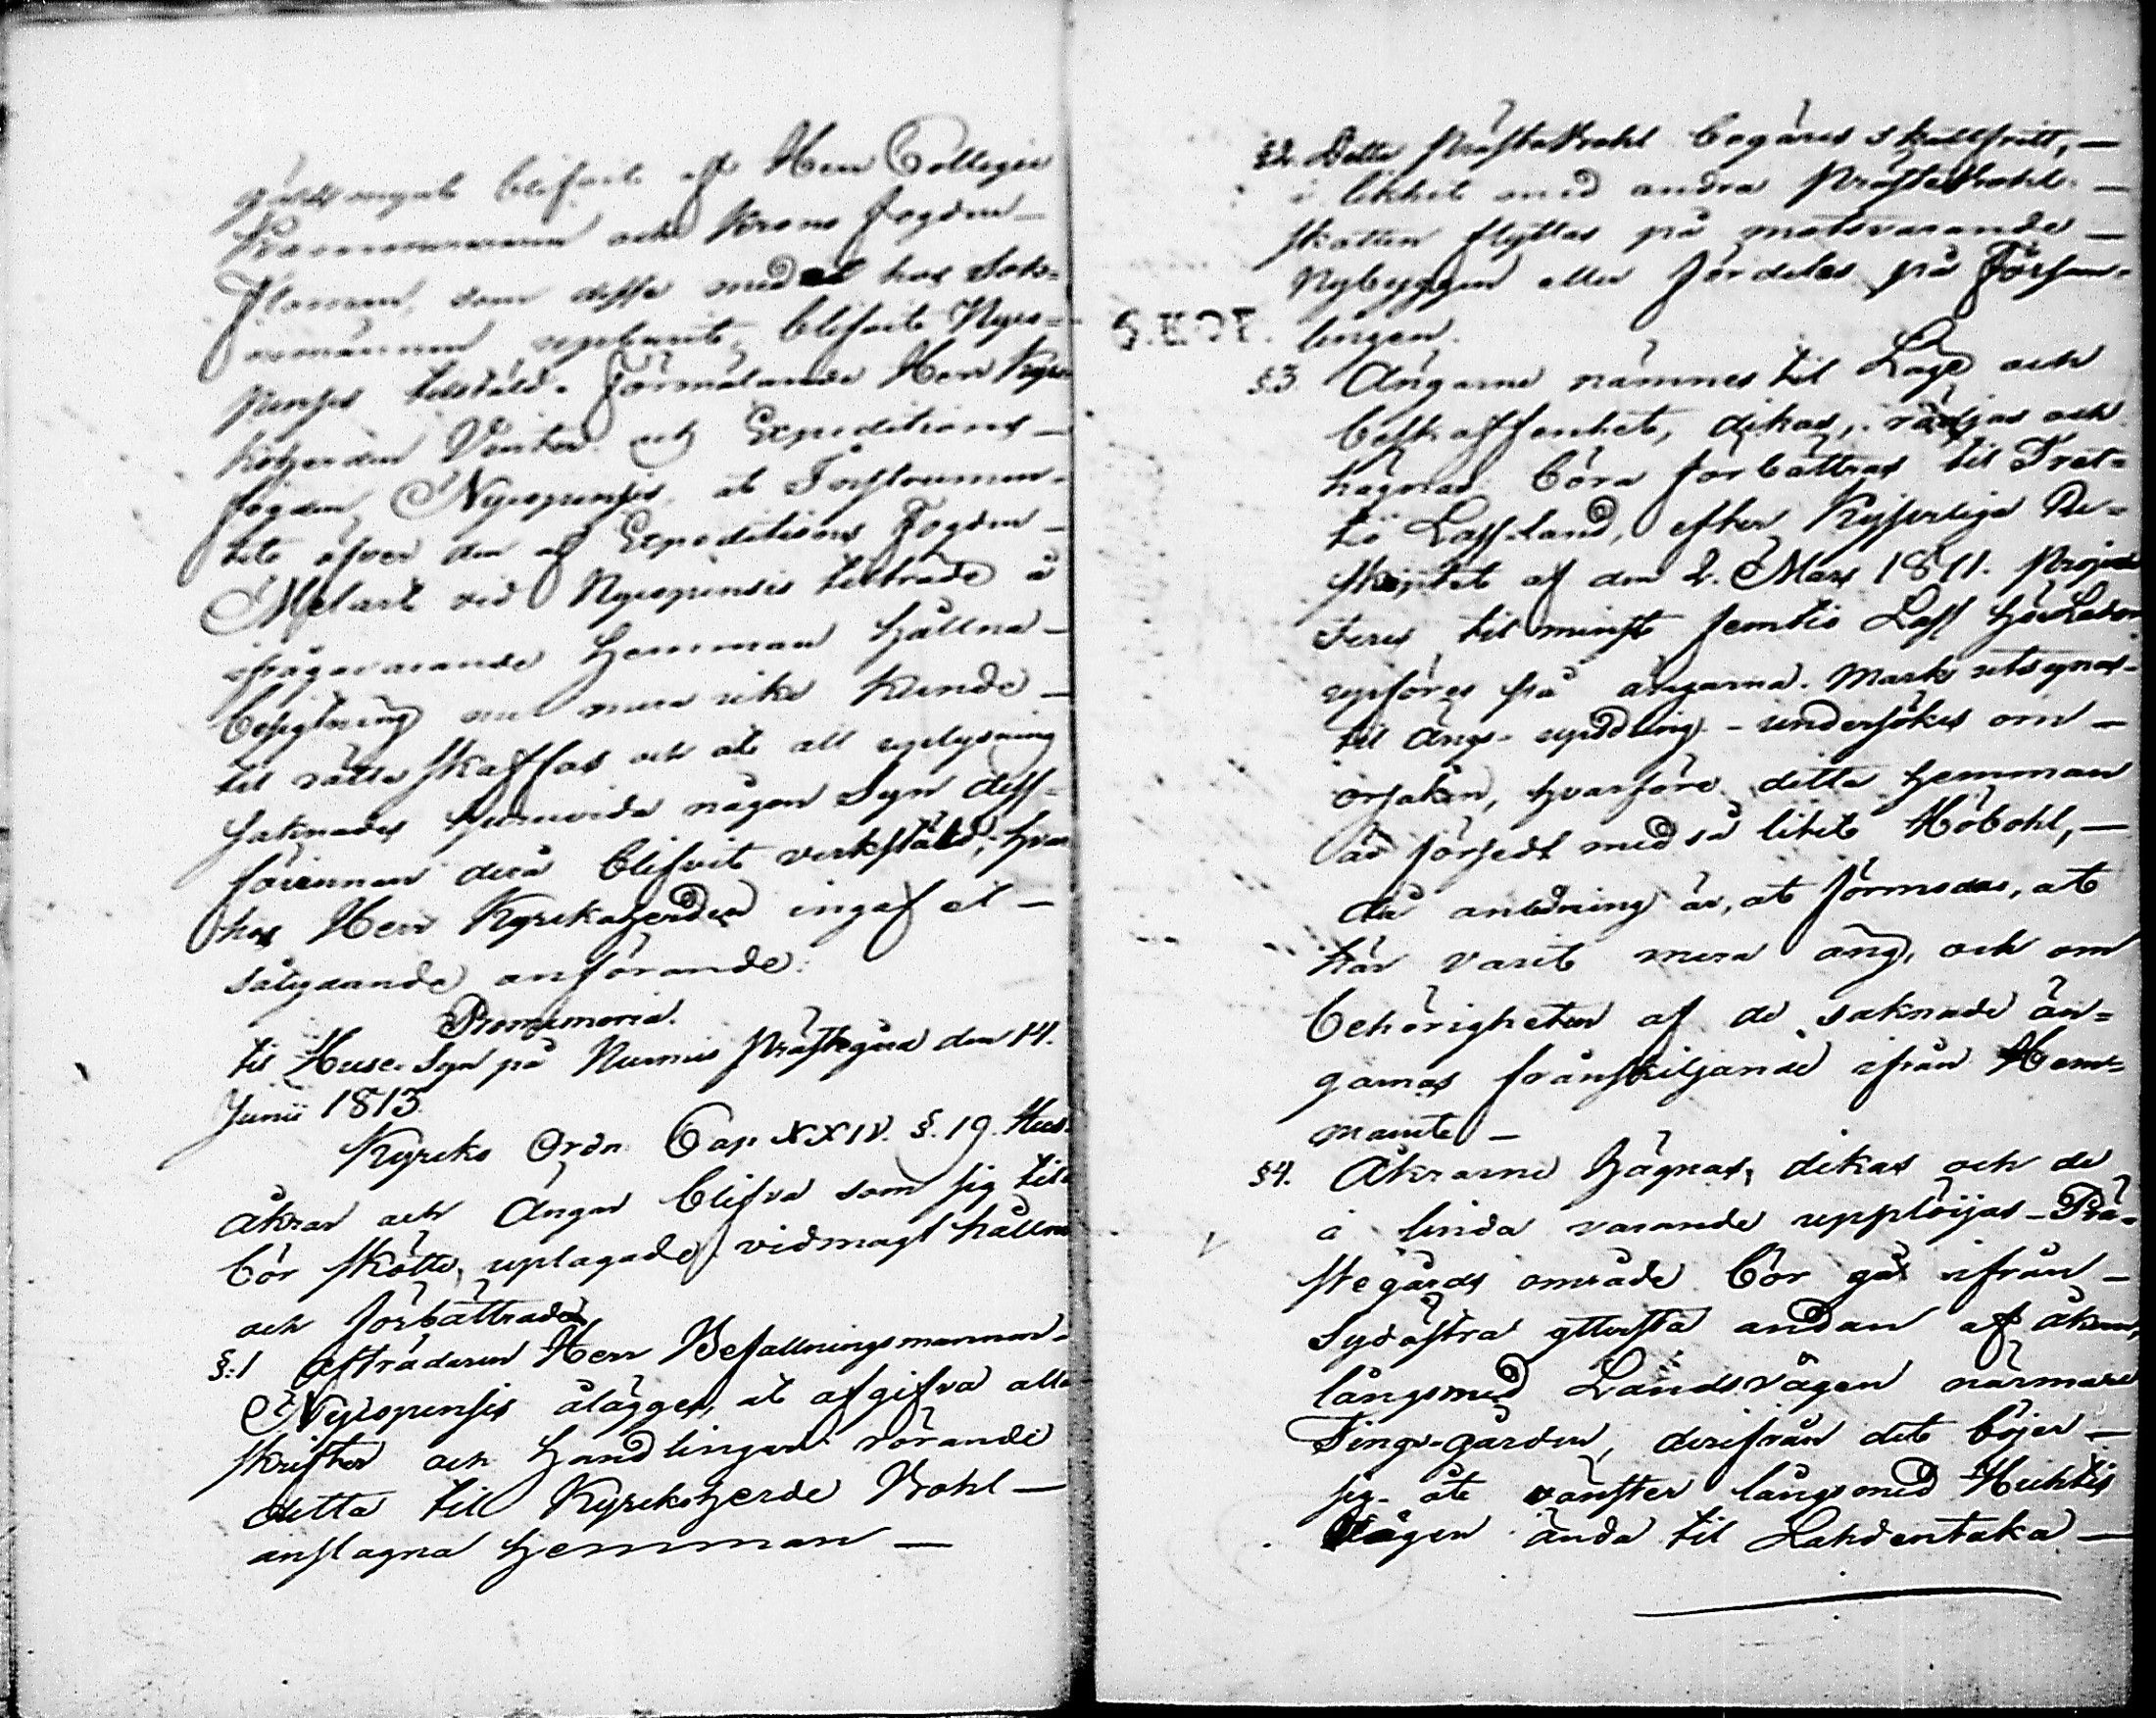 blifvit af Herr Collegii
och Krono Fogden
Floman, som desse medel hos Sok-
nemännen blifvit Nyco-
pensis tilstäld. Förmälande Herr Kyrko-
herden Winter och Expeditions
fogden Nycopensis, at Instrumen-
tet öfver den af Expeditions Fogden
Melart vid Nycopensis tilträde å
ifrågavarande Hemman hållna
besigtning nu mera icke kunde
til rätta skaffas och at all uplysning
saknades huruvida någon Syn dess-
förinnan derå blifvit verkstäld; hvar
hos Herr Kyrkoherden ingaf et
sålydande anförande:
Promemoria.
til Huse Syn på Nurmis Prästegård den 14.
Junii 1813.
Kyrko Ordn. Cap XXIV. §. 19. Hus
åkrar och Ängar blifva som sig till
bör skötte, uplagade, vidmagt hållne
och förbättrade
§. 1 Afträdaren Herr Befallningsmannen
Nycopensis ålägges, at afgifva alla
skrifter och Handlingar rörande
detta till Kyrkoherde Bohl
anslagna Hemman
§2. Detta Prästebohl begäres skattfritt,
i likhet med andra Prästebohl.
skatten flyttas på motsvarande
Nybyggen eller fördelas på Försam-
lingen.
§3 Ängarne nämnes til Läge och
beskaffenhet, dikas, rödjas och
hägnas böra förbättras til Tret-
tio Lass Land, efter Kejserliga Re-
skriptet af den 2. Mars 1811. Projec-
teres til minst femtio Lass Hö Lador
upföres på ängarna. Mark utsynas
til Ängs-updling - undersökes om
orsaken, hvarföre detta Hemman
är försedt med så litet Höbohl,
då anledning är, at förmodas, at
här varit mera äng, och om
behörigheten af de saknade än-
garnas frånskiljande ifrån Hem-
manet
§4. Åkrarne hägnas, dikas och de
i linda varande upplöijas - Prä-
stegårds område bör gå ifrån
Sydöstra yttersta ändan af åkern,
långsmed Landsvägen närmare
Tings-gården, derifrån det böjer
sig åt vänster långsmed Huhtis
Vägen ända til Lahdentaka